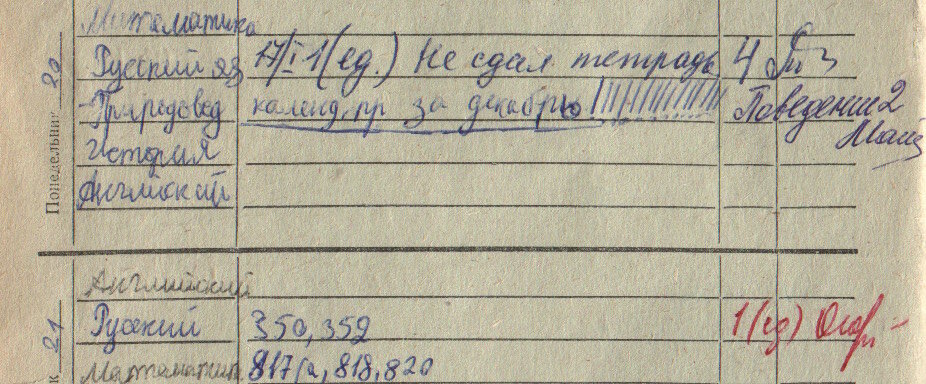 Математика
Понедельник 20
Русский яз 17/I 1(ед.) Не сдал тетрадь 4
Природовед календ. пр за декабрь Поведение 2
История
Английский
Английский
21
Русский 350, 352 1(ед)
Математик 817(а, 818, 820